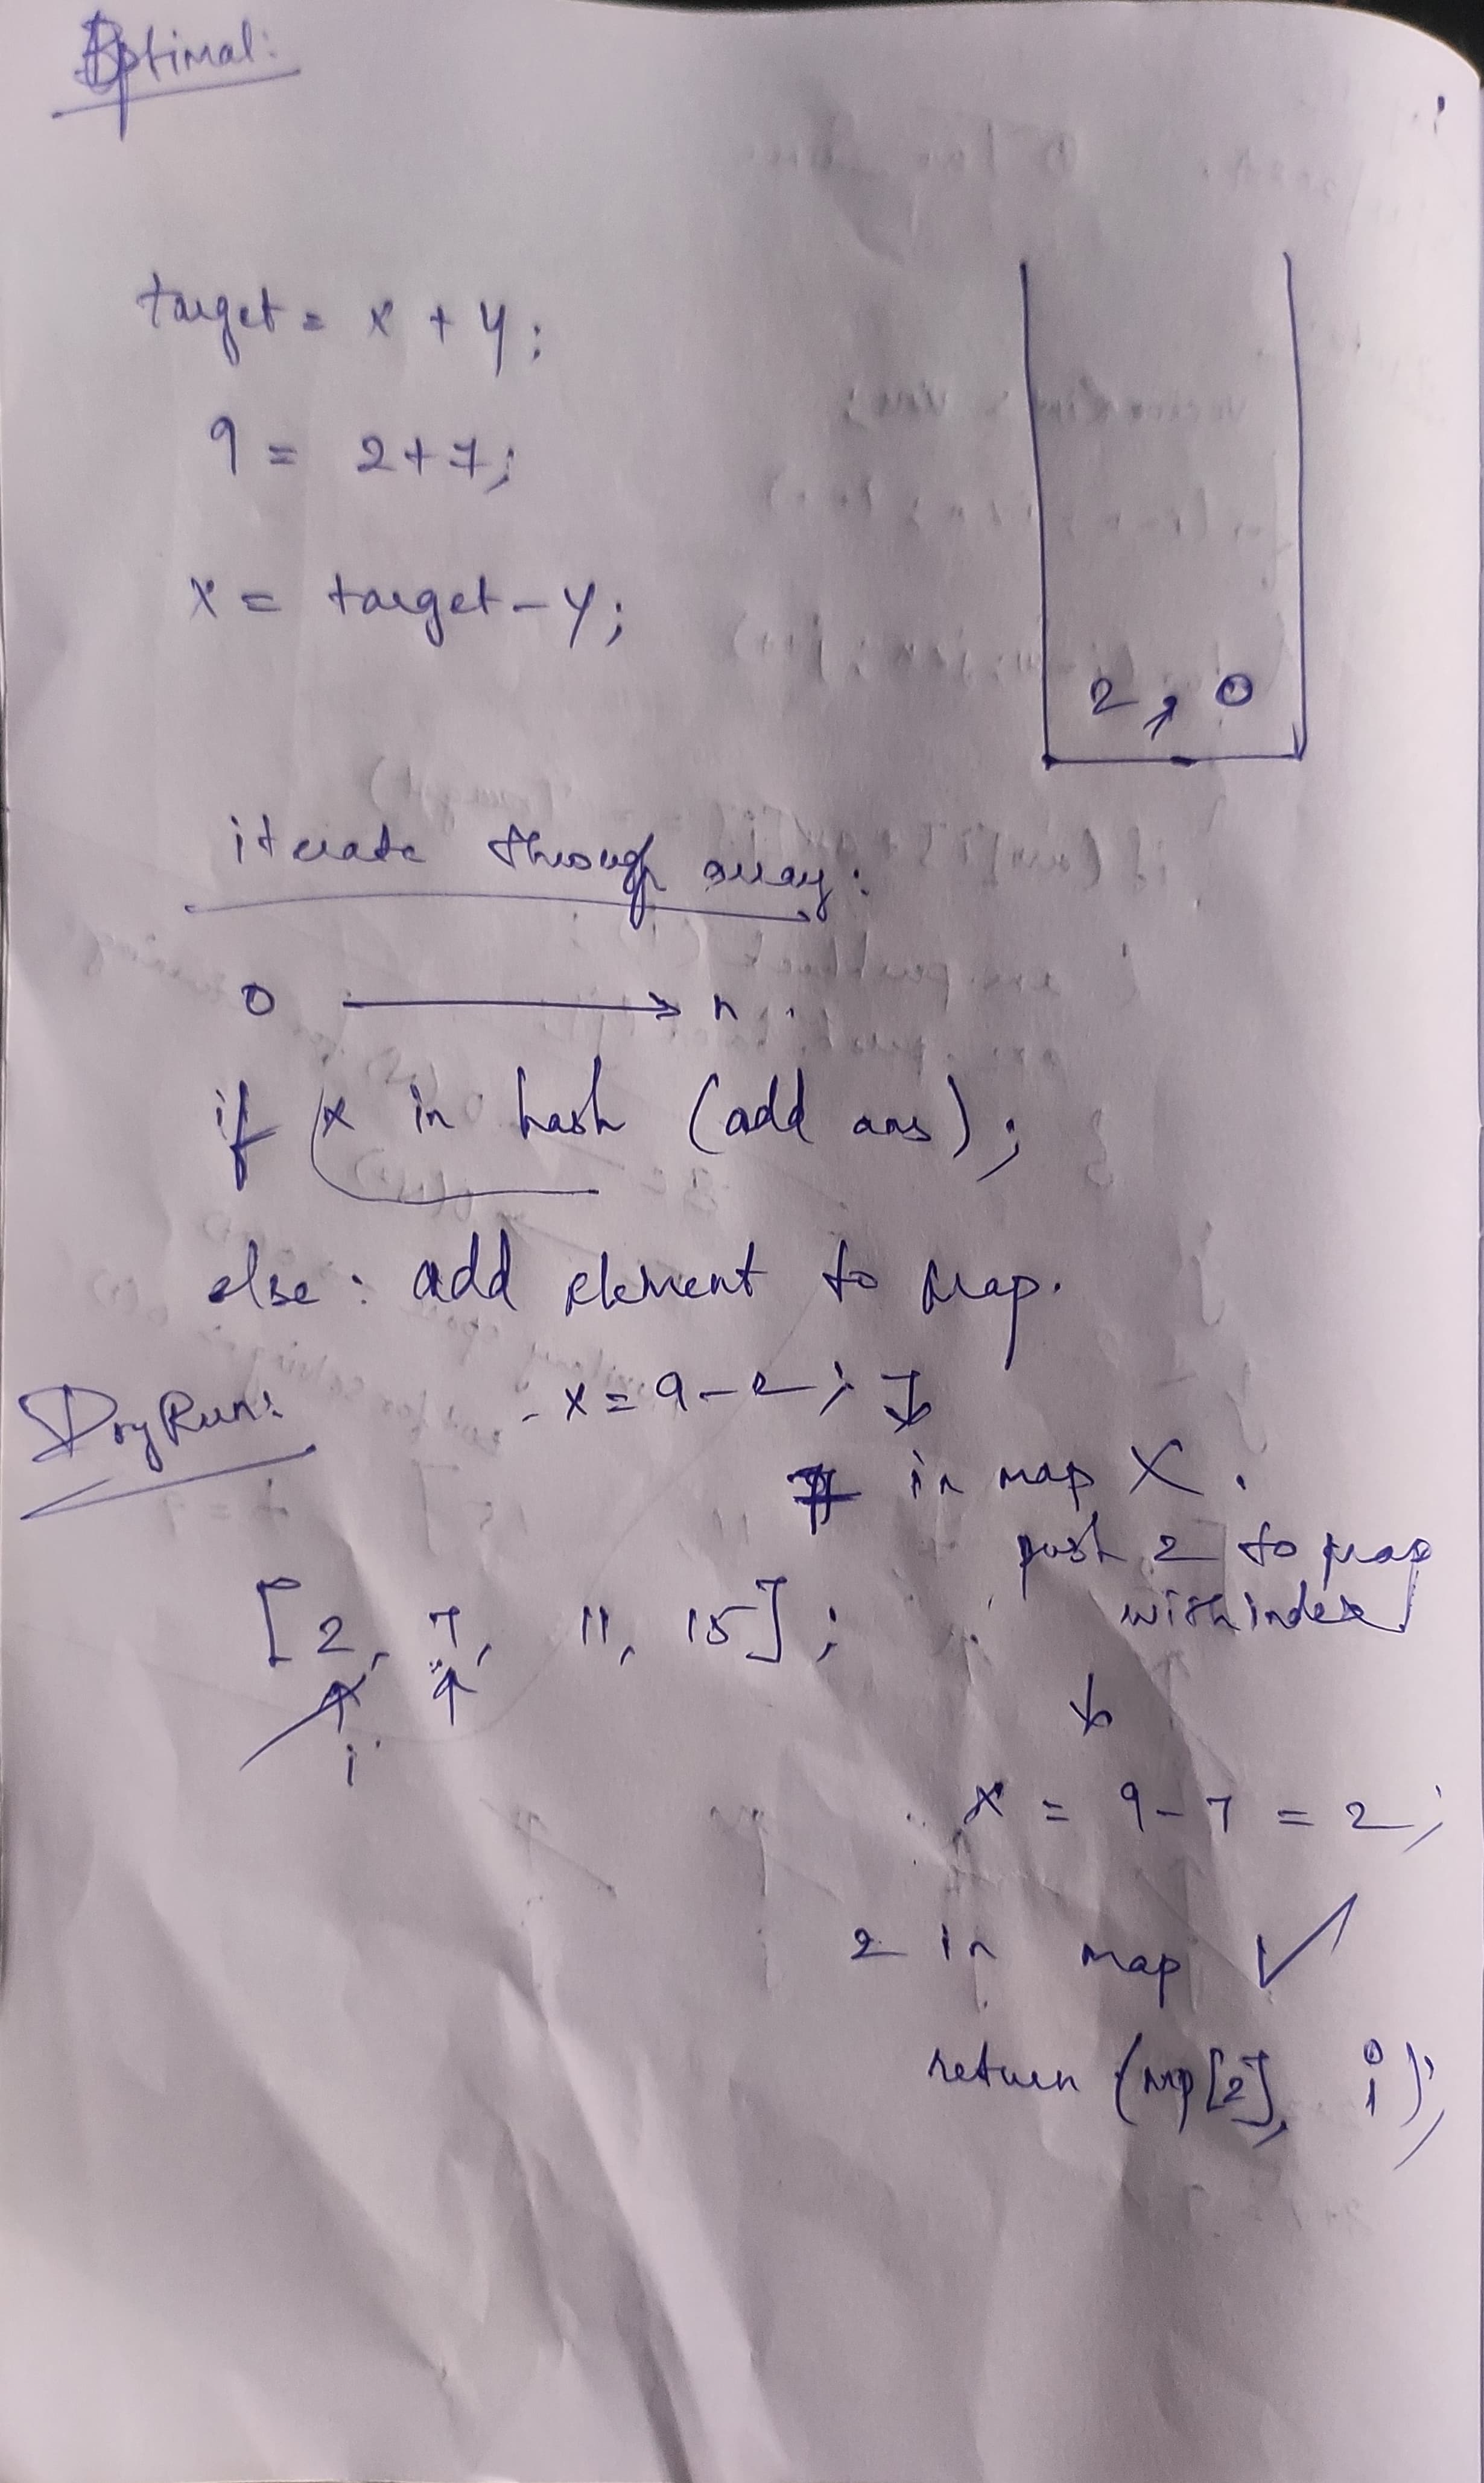 Optimal:
target = x + y;
9 = 2+7;
x = target - y;
2, 0
iterate through array:
0 → n.
if (x in hash (add ans);
else: add element to map.
Dry Run:
- x = 9 - 2; 7
7 in map X.
push 2 to map
with index
[2, 7, 11, 15];
i
x = 9 - 7 = 2;
2 in map ✓
return (mp[2], i);